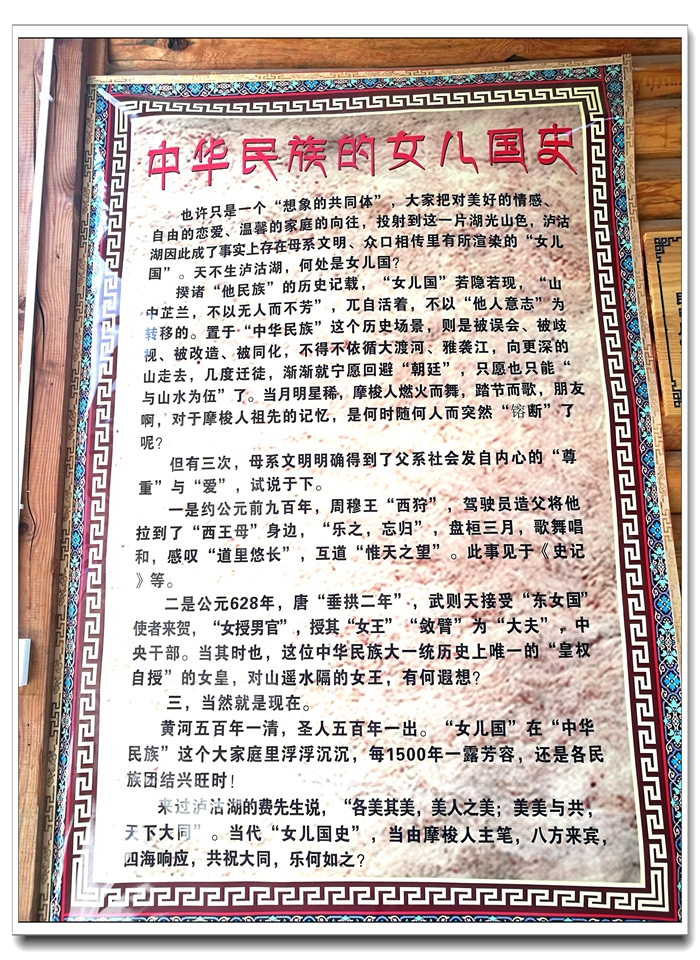 中华民族的女儿国史
也许只是一个“想象的共同体”，大家把对美好的情感、
自由的恋爱、温馨的家庭的向往，投射到这一片湖光山色，泸沽
湖因此成了事实上存在母系文明、众口相传里有所渲染的“女儿
国”。天不生泸沽湖，何处是女儿国？
揆诸“他民族”的历史记载，“女儿国”若隐若现，“山
中芷兰，不以无人而不芳”，兀自活着，不以“他人意志”为
转移的。置于“中华民族”这个历史场景，则是被误会、被歧
视、被改造、被同化，不得不依循大渡河、雅砻江，向更深的
山走去，几度迁徒，渐渐就宁愿回避“朝廷”，只愿也只能“
与山水为伍”了。当月明星稀，摩梭人燃火而舞，踏节而歌，朋友
啊，对于摩梭人祖先的记忆，是何时随何人而突然“镕断”了
呢？
但有三次，母系文明明确得到了父系社会发自内心的“尊
重”与“爱”，试说于下。
一是约公元前九百年，周穆王“西狩”，驾驶员造父将他
拉到了“西王母”身边，“乐之，忘归”，盘桓三月，歌舞唱
和，感叹“道里悠长”，互道“惟天之望”。此事见于《史记
》等。
二是公元628年，唐“垂拱二年”，武则天接受“东女国”
使者来贺，“女授男官”，授其“女王”“敛臂”为“大夫”，中
央干部。当其时也，这位中华民族大一统历史上唯一的“皇权
自授”的女皇，对山遥水隔的女王，有何遐想？
三，当然就是现在。
黄河五百年一清，圣人五百年一出。“女儿国”在“中华
民族”这个大家庭里浮浮沉沉，每1500年一露芳容，还是各民
族团结兴旺时！
来过泸沽湖的费先生说，“各美其美，美人之美；美美与共，
天下大同”。当代“女儿国史”，当由摩梭人主笔，八方来宾，
四海响应，共祝大同，乐何如之？